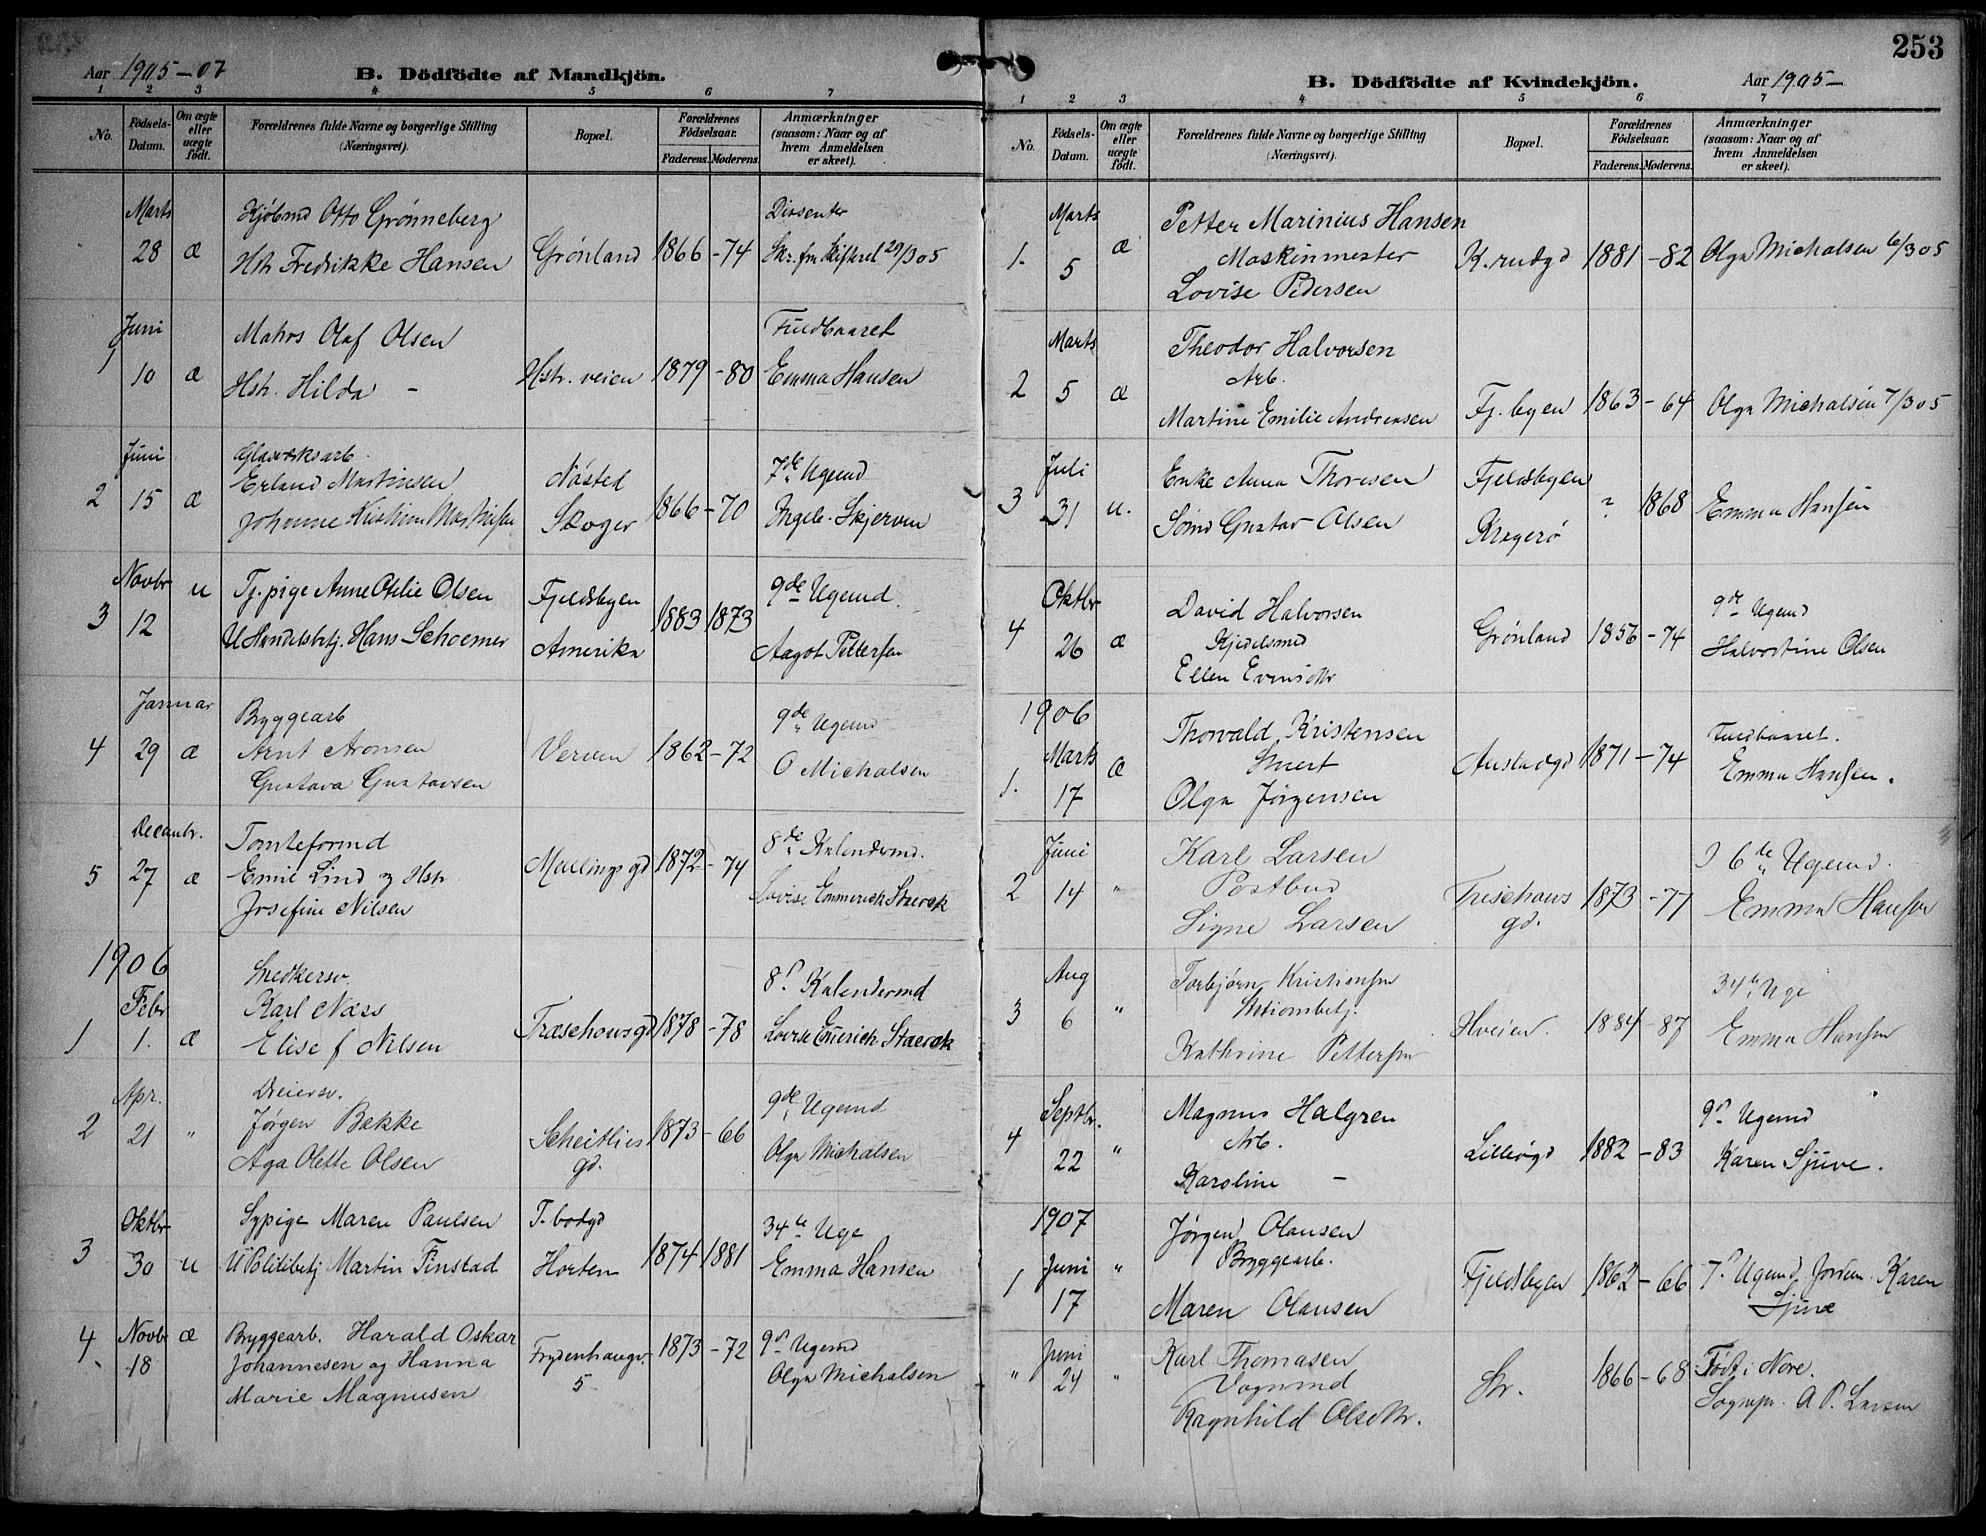 Aar 1905-07
B. Dödfödte af Mandkjön.
1 2 3 4 5 6 7
No.
Födsels-Datum.
Om ægte eller uægte födt.
Forældrenes fulde Navne og borgerlige Stilling
(Næringsvei).
Bopæl.
Forældrenes Födselsaar.
Faderens. Moderens.
Anmærkninger
(saasom: Naar og af
hvem Anmeldelsen
er skeet).
Marts Kjøbmd Otto Grønneberg Dissenter
28 æ Hstr Fredrikke Hansen Grønland 1866 -74 Skr. fra Skifteret 29/3 05
Juni Matros Olaf Olsen Fuldbaaret
1 10 æ Hstr. Hilda - Hstr. veien 1879 -80 Emma Hansen
Juni Glasværksarb.
Erland Martinsen Nøsted 7de Ugemd
2 15 æ Johanne Kristine Martinsen Skoger 1866 -70 Ingeb. Skjerven
Novbr u Tj.pige Anne Otilie Olsen Fjeldbyen 9de Ugemd.
3 12 U Handelsbetj. Hans Schoemer Amerika 1883 1873 Aagot Pettersen
Januar Bryggearb 9de Ugemd
4 29 æ Arnt Aronsen Verven 1862 -72 O Michalsen
Gustava Gustavsen
Decembr. Tomteformd 8de Kalendermd.
5 27 æ Emil Lind og Hstr Mallings gd 1872 -74
Josefine Nilsen Lovise Emmerich Staerck
1906 Snedkersv. 8d Kalendermd
Febr Karl Næss
1 1. æ Elise f Nilsen Træschowsgd 1878 -78 Lovise Emerich Staerck
Apr. Dreiersv. 9de Ugemd
2 21 " Jørgen Bakke Scheitlies 1873 -66
Aga Olette Olsen gd. Olga Michalsen
Oktbr Sypige Maren Paulsen T. bodgd 34te Uge
3 30 u U Politibetj Martin Finstad Horten 1874 1881 Emma Hansen
4 Novbr æ Bryggearb. Harald Oskar 1873 -72 9d Ugemd
18 Johannesen og Hanna Frydenhaugv. Olga Michalsen
Marie Magnusen 5
253
B. Dödfödte af Kvindekjön.
Aar 1905-
1 2 3 4 5 6 7
No.
Födsels-Datum.
Om ægte eller uægte födt.
Forældrenes fulde Navne og borgerlige Stilling
(Næringsvei).
Bopæl.
Forældrenes Födselsaar.
Faderens. Moderens.
Anmærkninger
(saasom: Naar og af
hvem Anmeldelsen
er skeet).
Marts Petter Marinius Hansen
1. 5 æ Maskinmester K.rudgd 1881 -82 Olga Michalsen 6/3 05
Lovise Pedersen
Marts Theodor Halvorsen
2 5 æ Arb.
Martine Emilie Andreasen Fj. byen 1863 -64 Olga Michalsen 7/3 05
Juli Enke Anna Thoresen Fjeldbyen
3 31 u. Sømd Gustav Olsen Kragerø ? 1868 Emma Hansen
Oktbr David Halvorsen 9de Ugemd
4 26 æ Kjedelsmed Grønland 1856 -74 Halvordine Olsen
Ellen Evensdtr
1906 Thorvald Kristensen Fuldbaaret.
Marts æ Snert Austadgd 1871 -74 Emma Hansen.
1. 17 Olga Jørgensen
Juni Karl Larsen I 6te Ugemd.
2 14 " Postbud Treschows 1873 -77 Emma Hansen
Signe Larsen gd.
Aug Torbjørn Kristiansen 34te Uge
3 6 " Aktionsbetj. Hveien. 1884 -87
Kathrine Pettersen Emma Hansen
Septbr. Magnus Halgren 9d Ugemd
4 22 " Arb. Lilleøgd 1882 -83
Karoline - Karen Sjuve.
1907 Jørgen Olausen
1 Juni " Bryggearb. Fjeldbyen 1862 -66 7d Ugemd Jordm. Karen
17 Maren Olausen Sjuve
Juni Karl Thomasen 1866 -68 Født i Nore.
" 24 " Vognmd Str. Sognepr. A P. Larsen
Ragnhild Olsdtr.